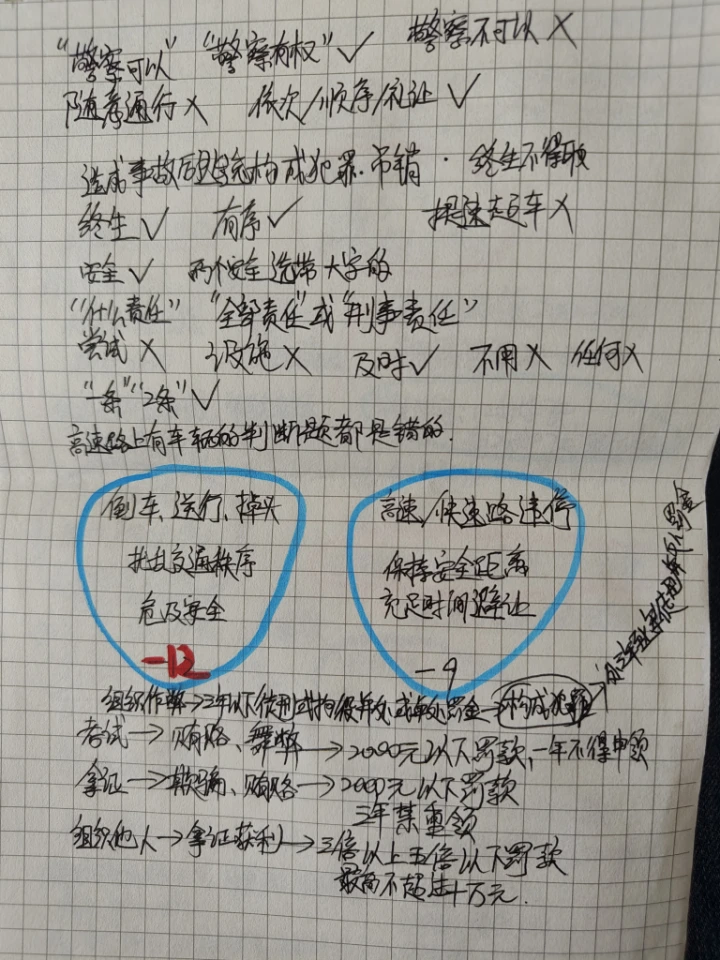 “警察可以” “警察有权” ✓ 警察不可以 ×
随意通行 × 依次/顺序/礼让 ✓
造成事故后逃逸构成犯罪.吊销.终生不得取
终生 ✓ 有序 ✓ 提速超车 ×
安全 ✓ 两个安全选带大字的
“什么责任” “全部责任”或“刑事责任”
尝试 × 设施 × 及时 ✓ 不用 × 任何 ×
“一条”“2条” ✓
高速路上有车辆的判断题都是错的.
倒车、逆行、掉头
扰乱交通秩序
危及安全
-12
高速/快速路违停
保持安全距离
充足时间避让
-9
组织作弊→三年以下徒刑或拘役并处或单处罚金→构成犯罪→
考试→贿赂、舞弊→2000元以下罚款,一年不得申领
拿证→欺骗、贿赂→2000元以下罚款
三年禁重领
组织他人→拿证获利→三倍以上五倍以下罚款
最高不超过十万元.